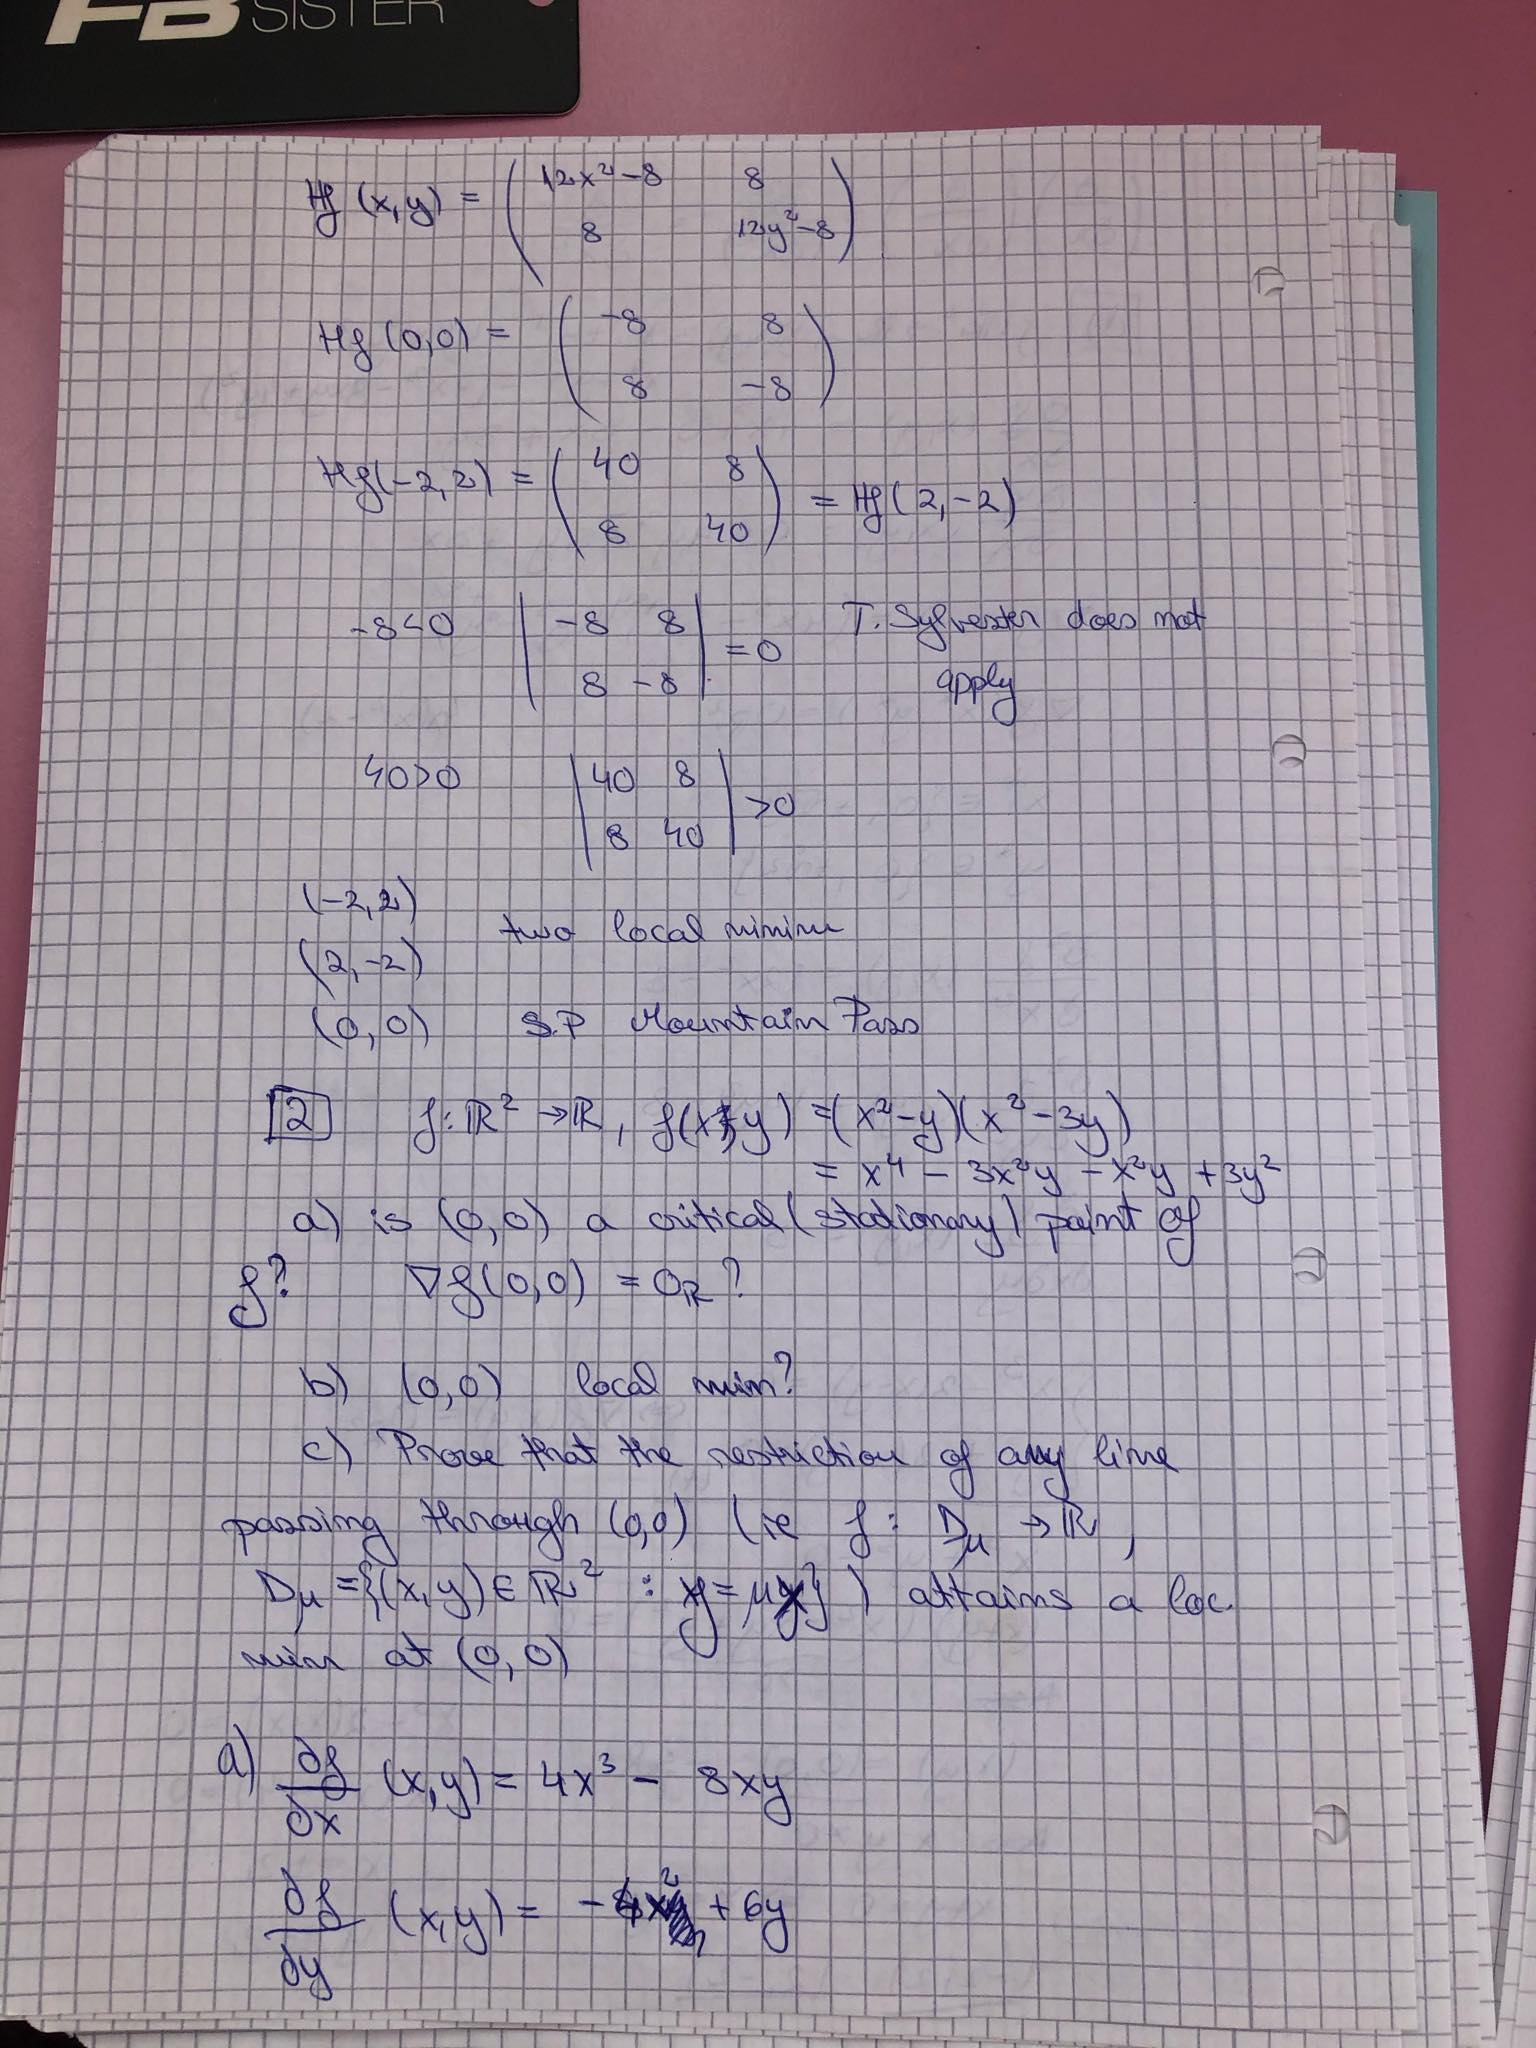 FB SISTER
Hf (x,y) = ( 12x² - 8   8
8   12y² - 8 )
Hf (0,0) = ( -8   8
8   -8 )
Hf(-2,2) = ( 40   8
8   40 ) = Hf (2,-2)
-8<0   | -8   8
8   -8 | = 0   T. Sylvester does not
apply
40>0   | 40   8
8   40 | >0
(-2,2)
two local minima
(2,-2)
(0,0)   S.P   Mountain Pass
2   f: ℝ² → ℝ, f(x,y) = (x²-y)(x²-3y)
= x⁴ - 3x²y - x²y + 3y²
a) is (0,0) a critical (stationary) point of
f?   ∇f(0,0) = 0ℝ?
b) (0,0) local min?
c) Prove that the restriction of any line
passing through (0,0) (ie f: Dμ → ℝ,
Dμ = {(x,y) ∈ ℝ² : y = μx}) attains a loc.
min at (0,0)
a) ∂f/∂x (x,y) = 4x³ - 8xy
∂f/∂y (x,y) = -4x² + 6y